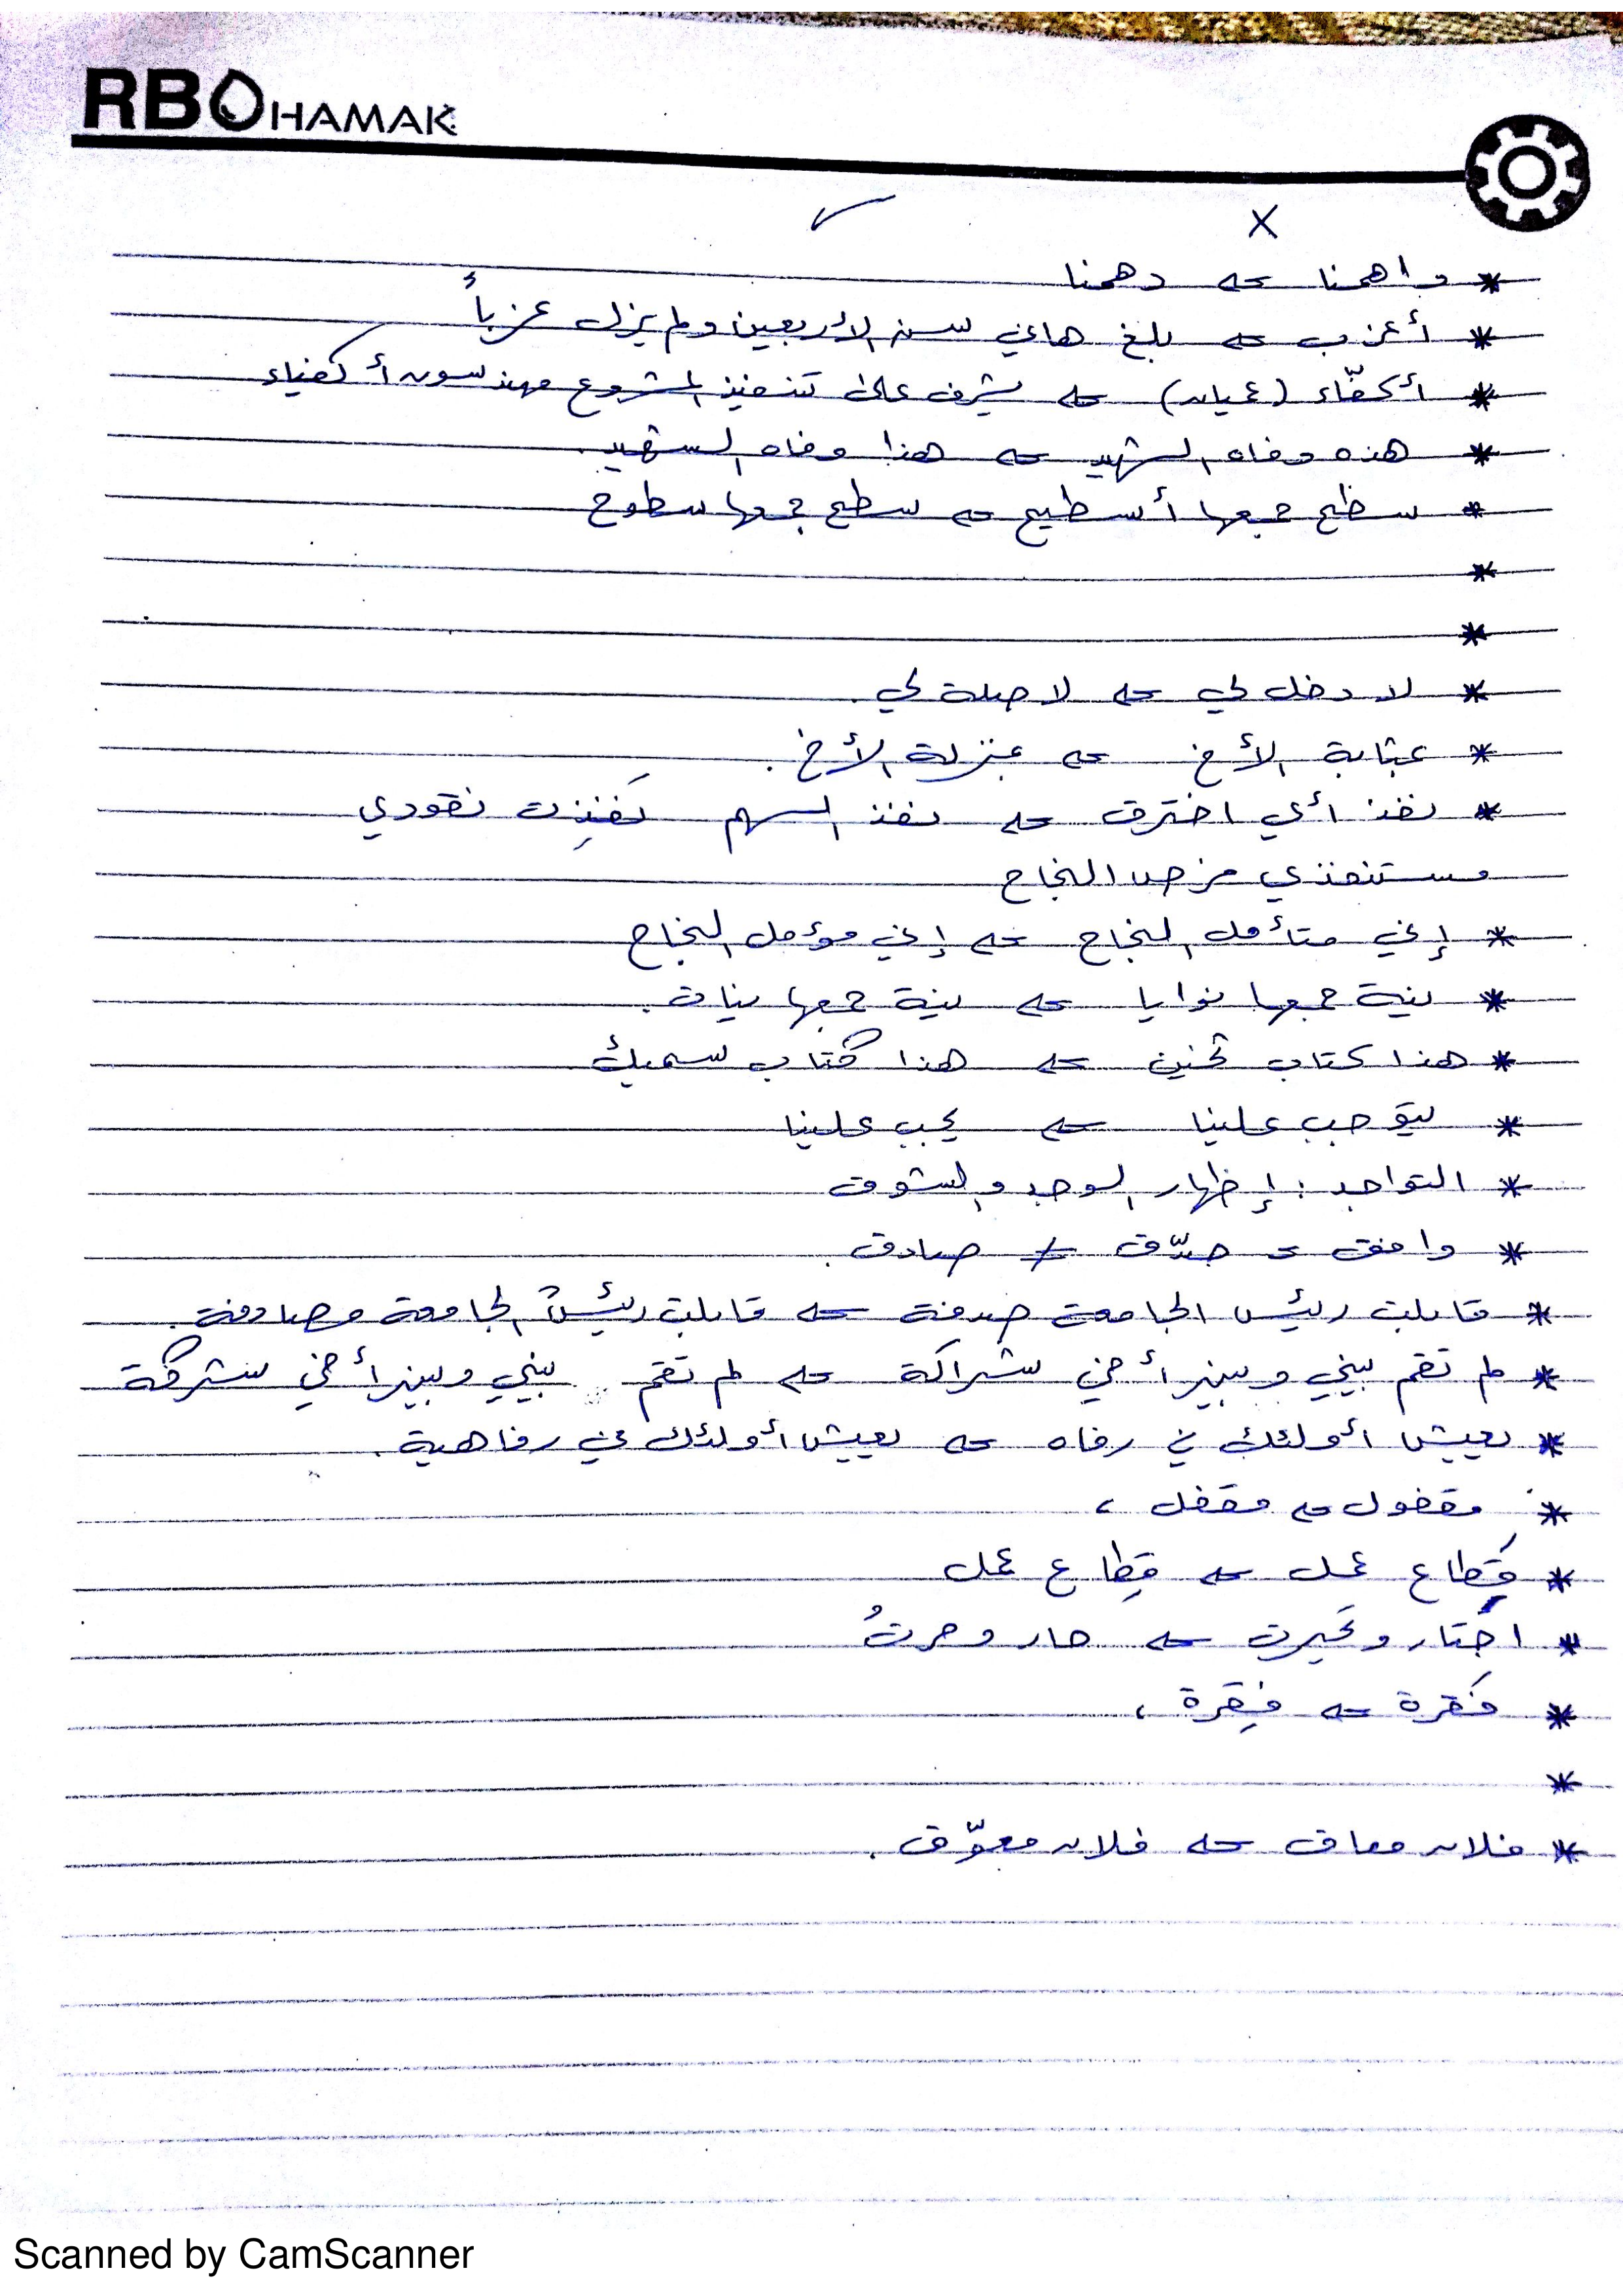 RBO HAMAK
✓ X
* داهمنا ← دهمنا
* أعزب ← بلغ هاني سن الأربعين ولم يزل عزباً
* أكفّاء (عميان) ← يشرف على تنفيذ المشروع مهندسون أكفياء
* هذه رفاه الشهيد ← هذا رفاه الشهيد.
* سطح جمعها أسطح ← سطح جمعها سطوح
*
*
* لا دخل لي ← لا صلة لي.
* بمثابة الأخ ← بمنزلة الأخ.
* نفذ أي اخترق ← نفذ السهم نَفِذت نقودي
مستنفذي فرص النجاح
* إني متأمل النجاح ← إني مؤمل النجاح
* نية جمعها نوايا ← نية جمعها نيات.
* هذا كتاب ثخين ← هذا كتاب سميك
* يتوجب علينا ← يجب علينا
* التواجد : إظهار الوجد والشوق
* وافق = صدّق ≠ صادق.
* قابلت رئيس الجامعة صدفة ← قابلت رئيس الجامعة مصادفة.
* لم تقم بيني وبين أخي شراكة ← لم تقم بيني وبين أخي شركة
* يعيش أولئك في رفاه ← يعيش أولئك في رفاهية.
* مقفول ← مقفل،
* قَطاع عمل ← قِطاع عمل
* احتار وتحيرت ← حار وحرتُ
* فَقرة ← فِقرة،
*
* فلان معاق ← فلان معوّق.
Scanned by CamScanner